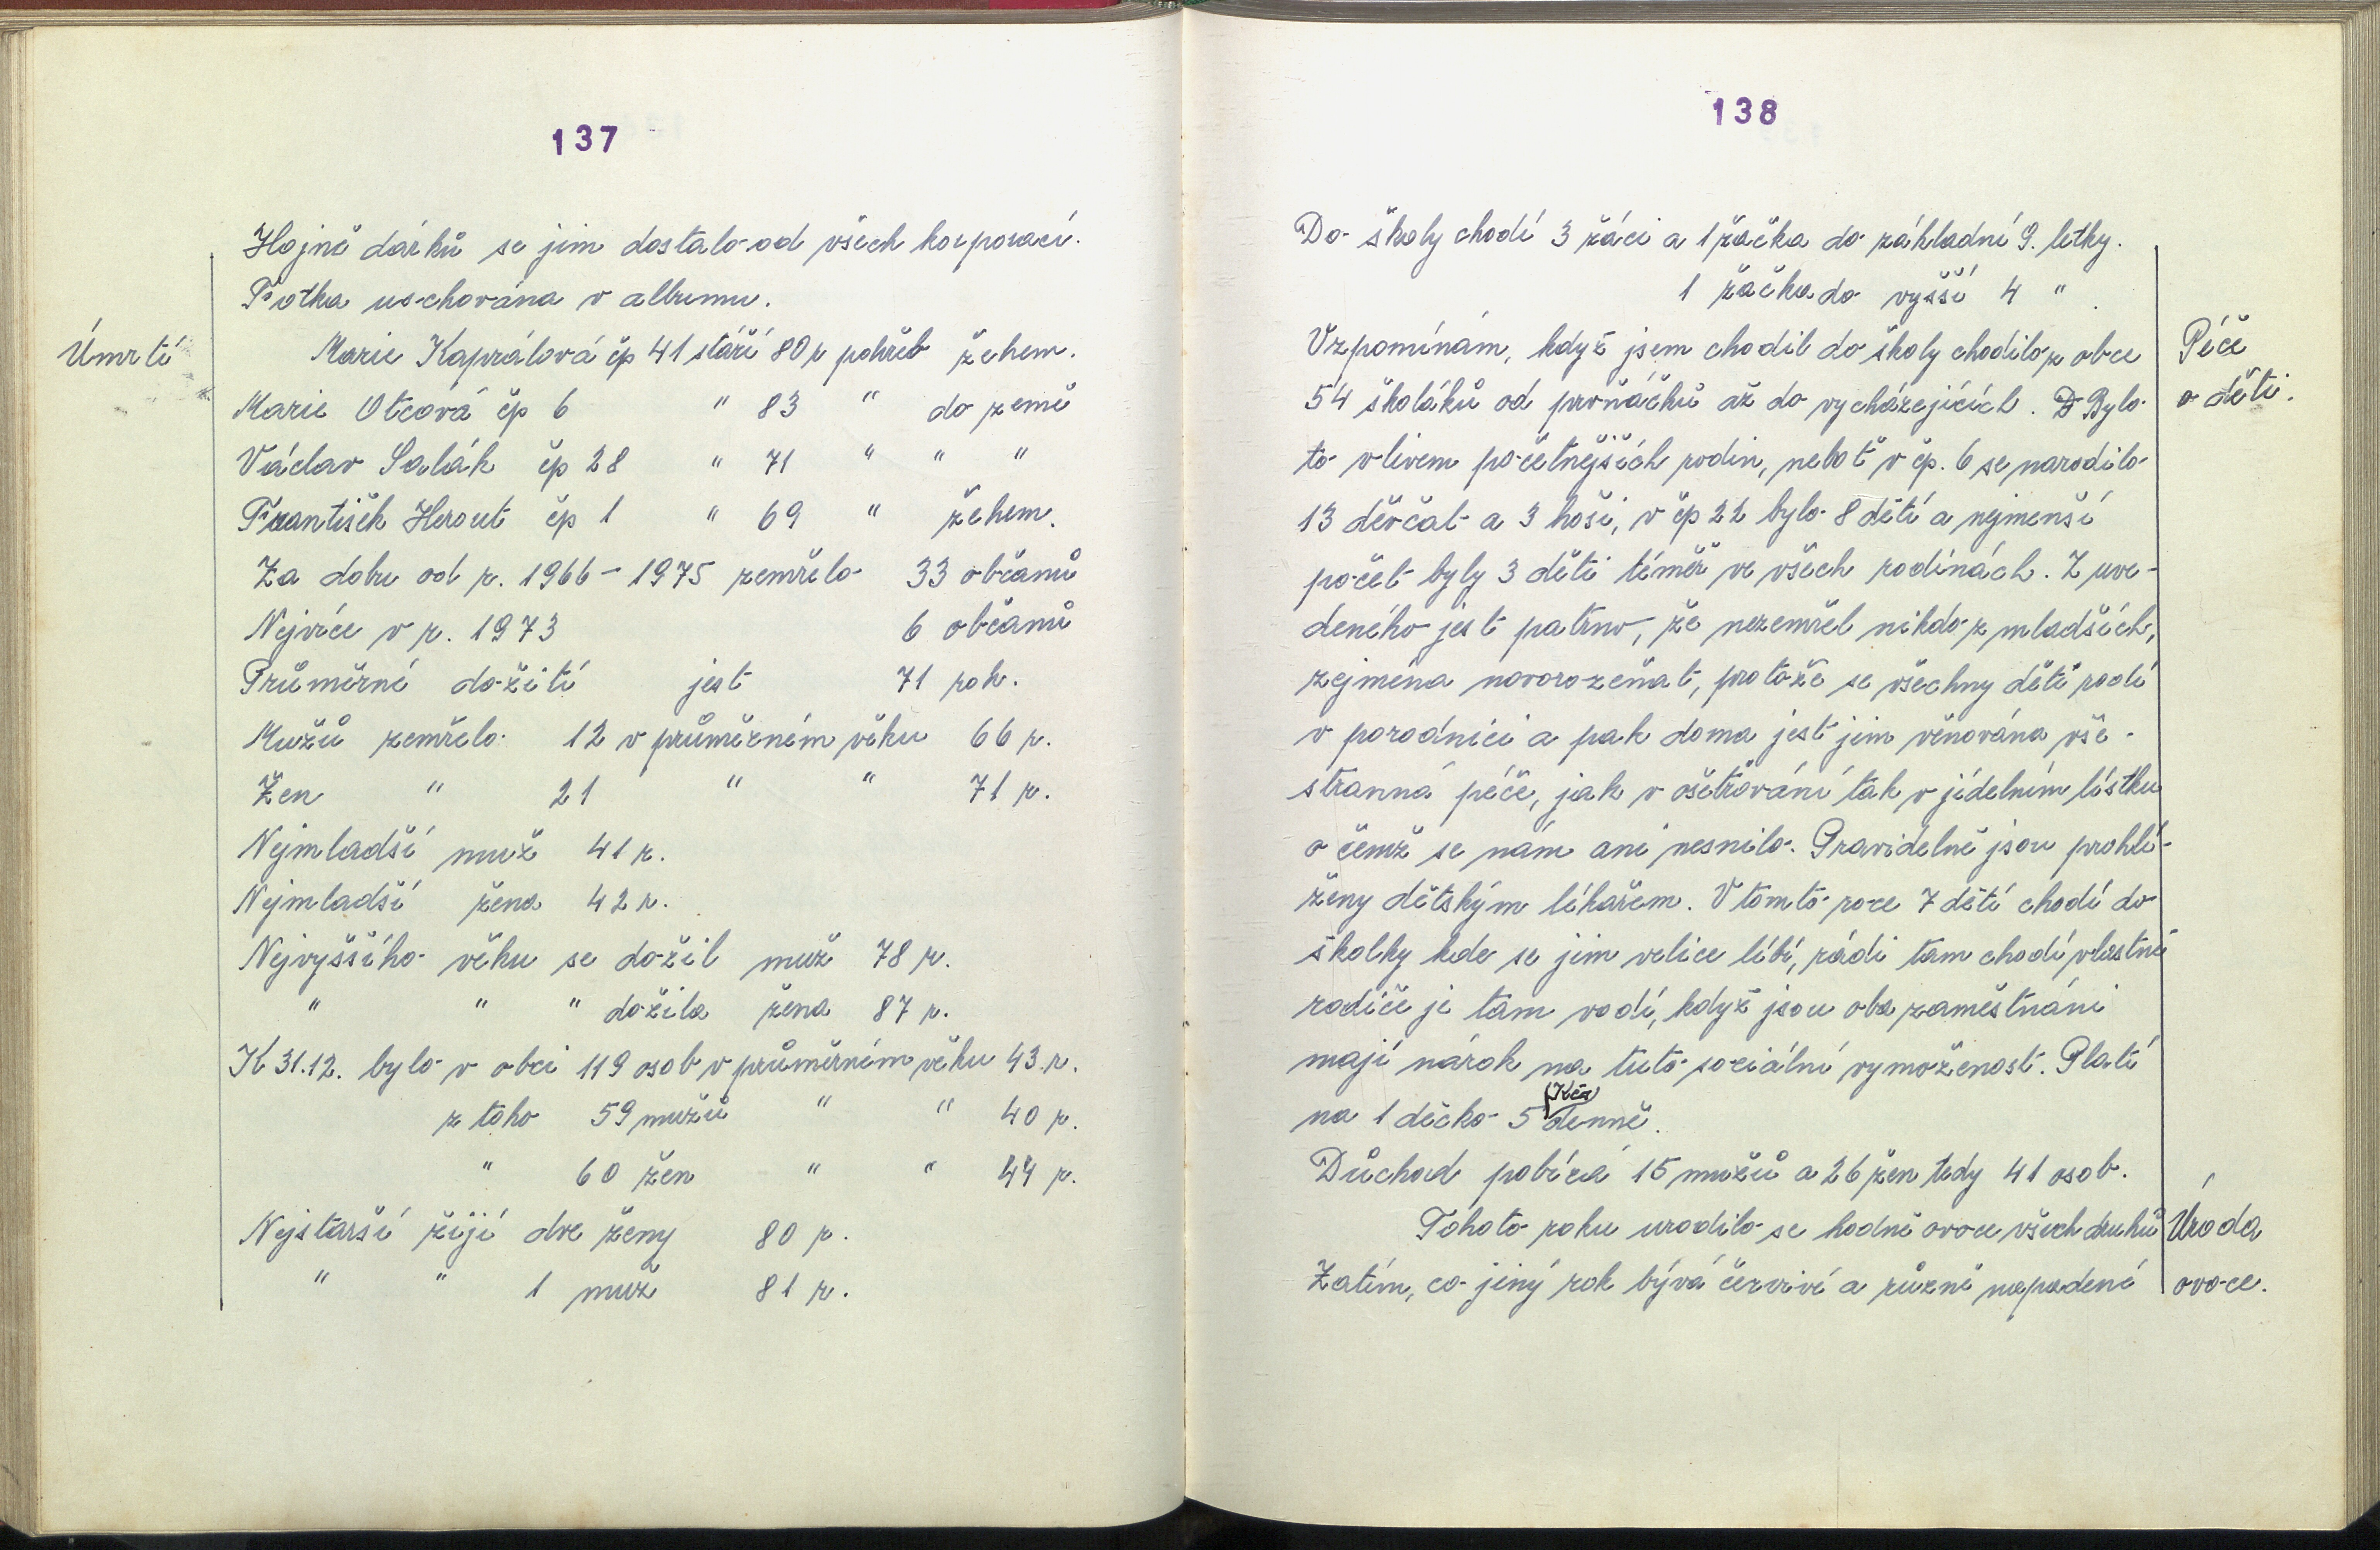 137
Hojně dárků se jim dostalo od všech korporací.
Fotka uschována v albumu.
Úmrtí
Marie Kaprálová čp 41 stáří 80 r pohřeb žehem.
Marie Otcová čp 6 " 83 " do země
Václav Salák čp 28 " 71 " " "
František Herout čp 1 " 69 " žehem.
Za dobu od r. 1966 - 1975 zemřelo 33 občanů
Nejvíce v r. 1973 6 občanů
Průměrné dožití jest 71 rok.
Mužů zemřelo 12 v průměrném věku 66 r.
Žen " 21 " " 71 r.
Nejmladší muž 41 r.
Nejmladší žena 42 r.
Nejvyššího věku se dožil muž 78 r.
" " " dožila žena 87 r.
K 31.12. bylo v obci 119 osob v průměrném věku 43 r.
z toho 59 mužů " " 40 r.
" 60 žen " " 44 r.
Nejstarší žijí dvě ženy 80 r.
" " 1 muž 81 r.
138
Do školy chodí 3 žáci a 1 žačka do základní 9. letky.
1 žačka do vyšší 4 " .
Vzpomínám, když jsem chodil do školy chodilo z obce
54 školáků od prvňáčků až do vycházejících. Bylo
to vlivem početnějších rodin, neboť v čp. 6 se narodilo
13 děvčat a 3 hoši, v čp 22 bylo 8 dětí a nejmenší
počet byly 3 děti téměř ve všech rodinách. Z uve-
deného jest patrno, že nezemřel nikdo z mladších,
zejména novorozeňat, protože se všechny děti rodí
v porodnici a pak doma jest jim věnována vše-
stranná péče, jak v ošetřování tak v jídelním lístku
o čemž se nám ani nesnilo. Pravidelně jsou prohlí-
ženy dětským lékařem. V tomto roce 7 dětí chodí do
školky kde se jim velice líbí, rádi tam chodí vlastně
rodiče je tam vodí, když jsou oba zaměstnáni
mají nárok na tuto sociální vymoženost. Platí
na 1 děcko 5 (Kčs) denně.
Důchod pobírá 15 mužů a 26 žen tedy 41 osob.
Tohoto roku urodilo se hodně ovoce všech druhů
Zatím, co jiný rok bývá červivé a různě napadené
Péče
o děti.
Úroda
ovoce.